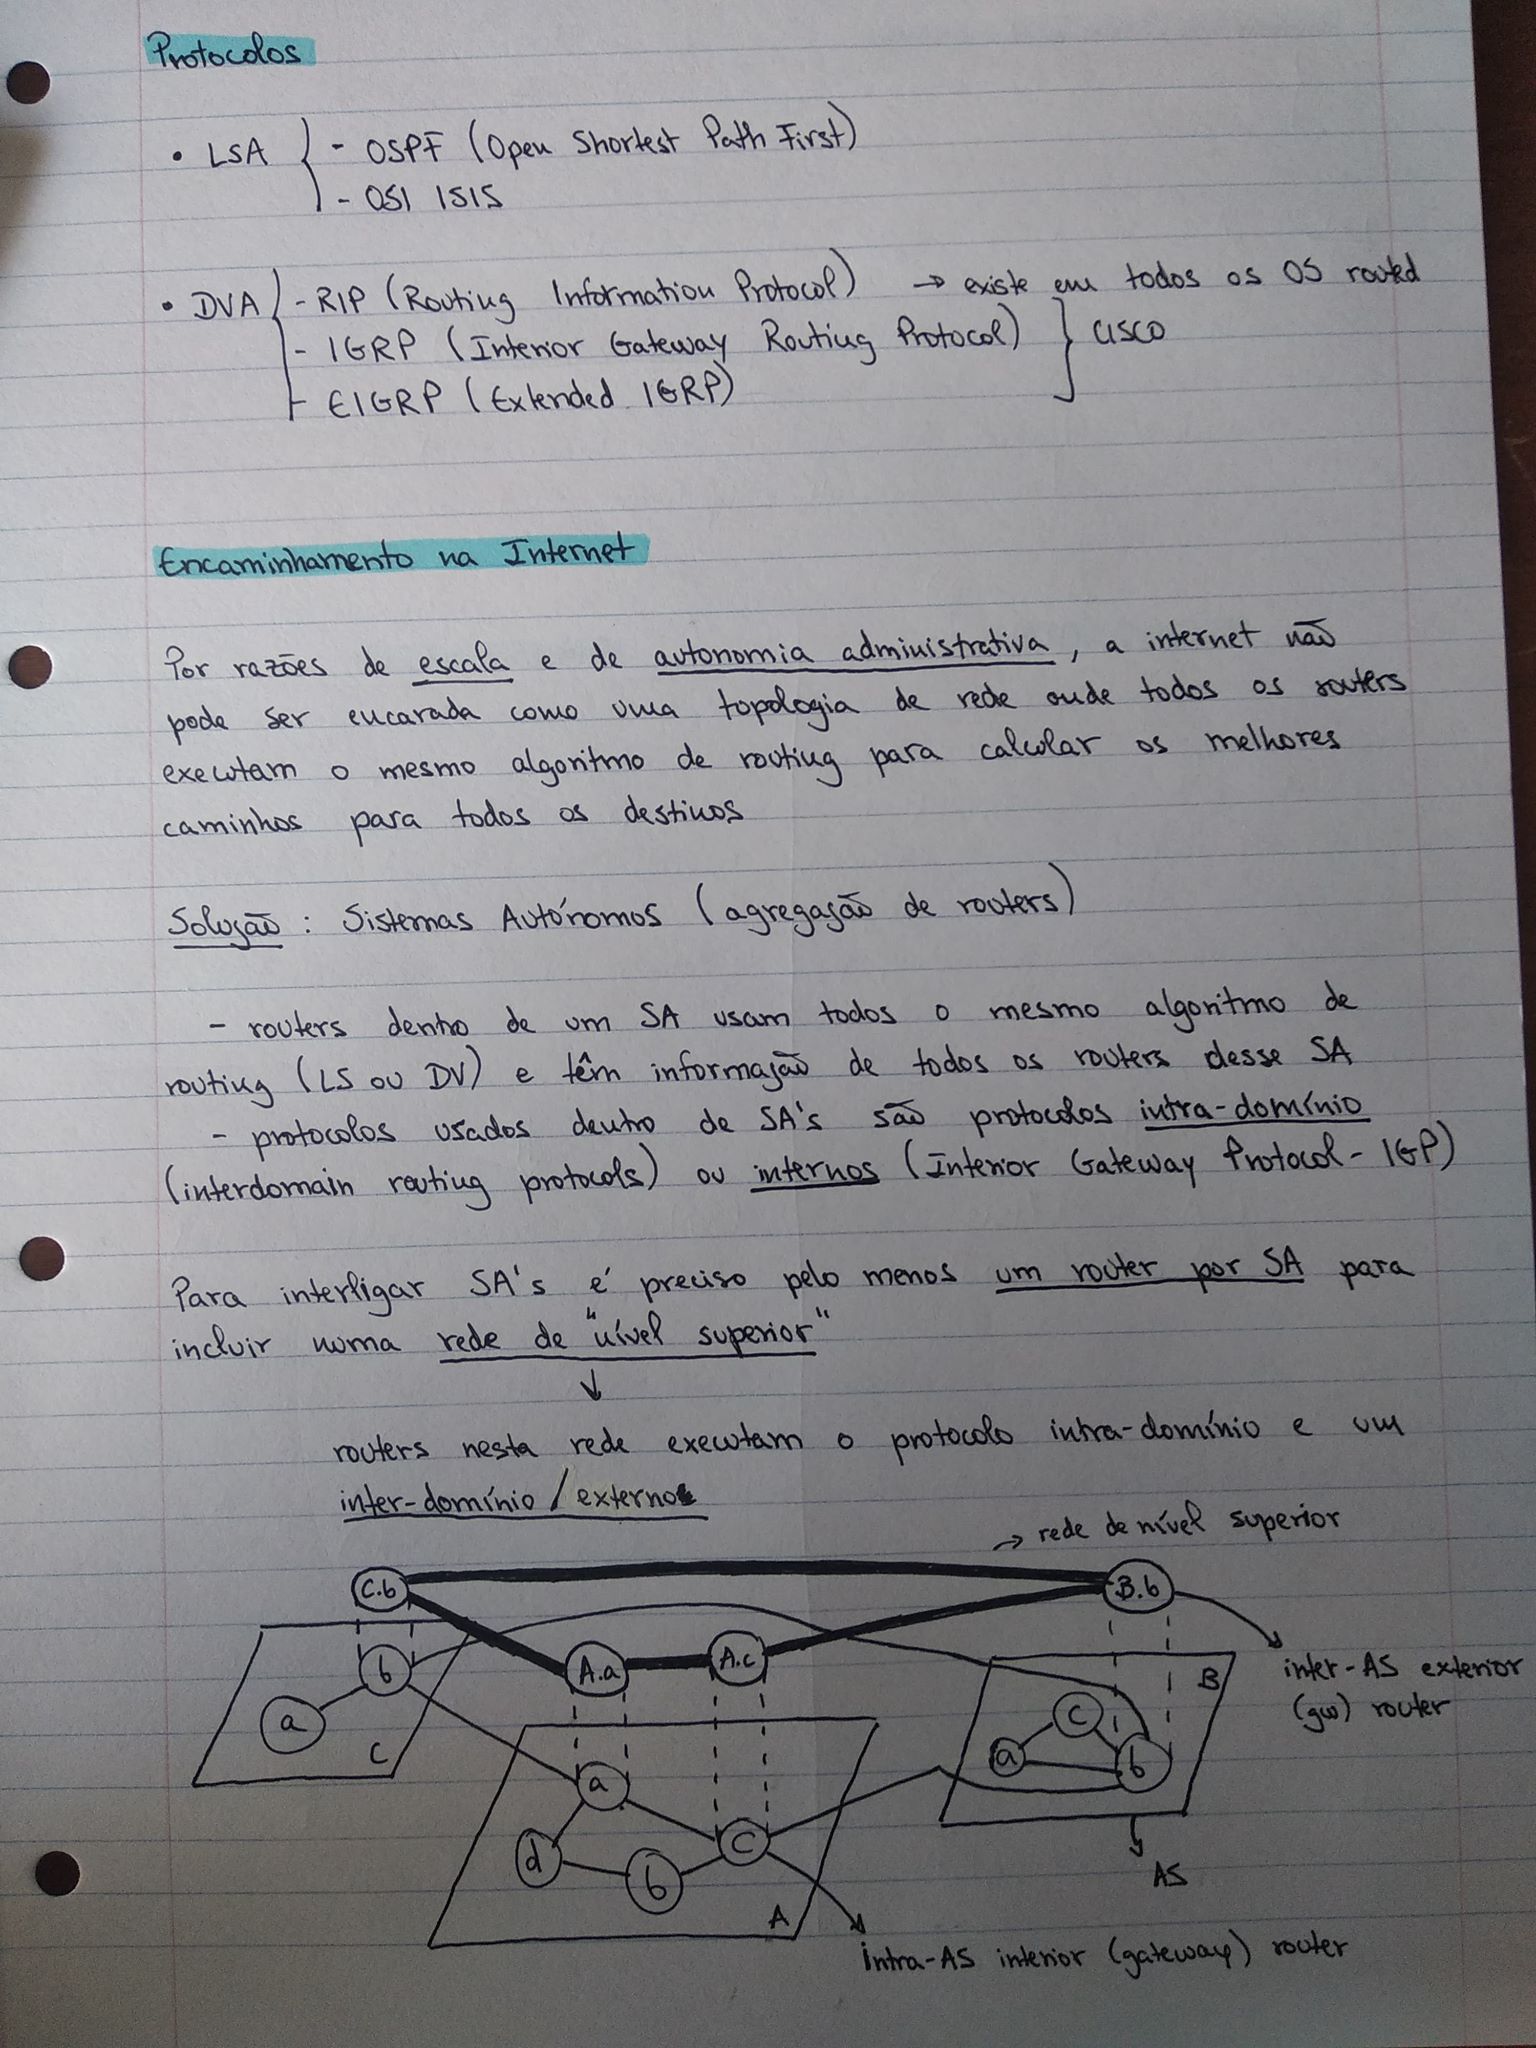 Protocolos
• LSA { - OSPF (Open Shortest Path First)
- OSI ISIS
• DVA { - RIP (Routing Information Protocol) → existe em todos os OS routed
- IGRP (Interior Gateway Routing Protocol) } CISCO
- EIGRP (Extended IGRP)
Encaminhamento na Internet
Por razões de escala e de autonomia administrativa, a internet não
pode ser encarada como uma topologia de rede onde todos os routers
executam o mesmo algoritmo de routing para calcular os melhores
caminhos para todos os destinos
Solução : Sistemas Autónomos (agregação de routers)
- routers dentro de um SA usam todos o mesmo algoritmo de
routing (LS ou DV) e têm informação de todos os routers desse SA
- protocolos usados dentro de SA's são protocolos intra-domínio
(interdomain routing protocols) ou internos (Interior Gateway Protocol - IGP)
Para interligar SA's é preciso pelo menos um router por SA para
incluir numa rede de "nível superior"
↓
routers nesta rede executam o protocolo intra-domínio e um
inter-domínio / externo
→ rede de nível superior
C.b
B.b
A.a
A.c
b
a
C
B
c
a
b
inter-AS exterior
(gw) router
a
d
b
c
A
AS
intra-AS interior (gateway) router